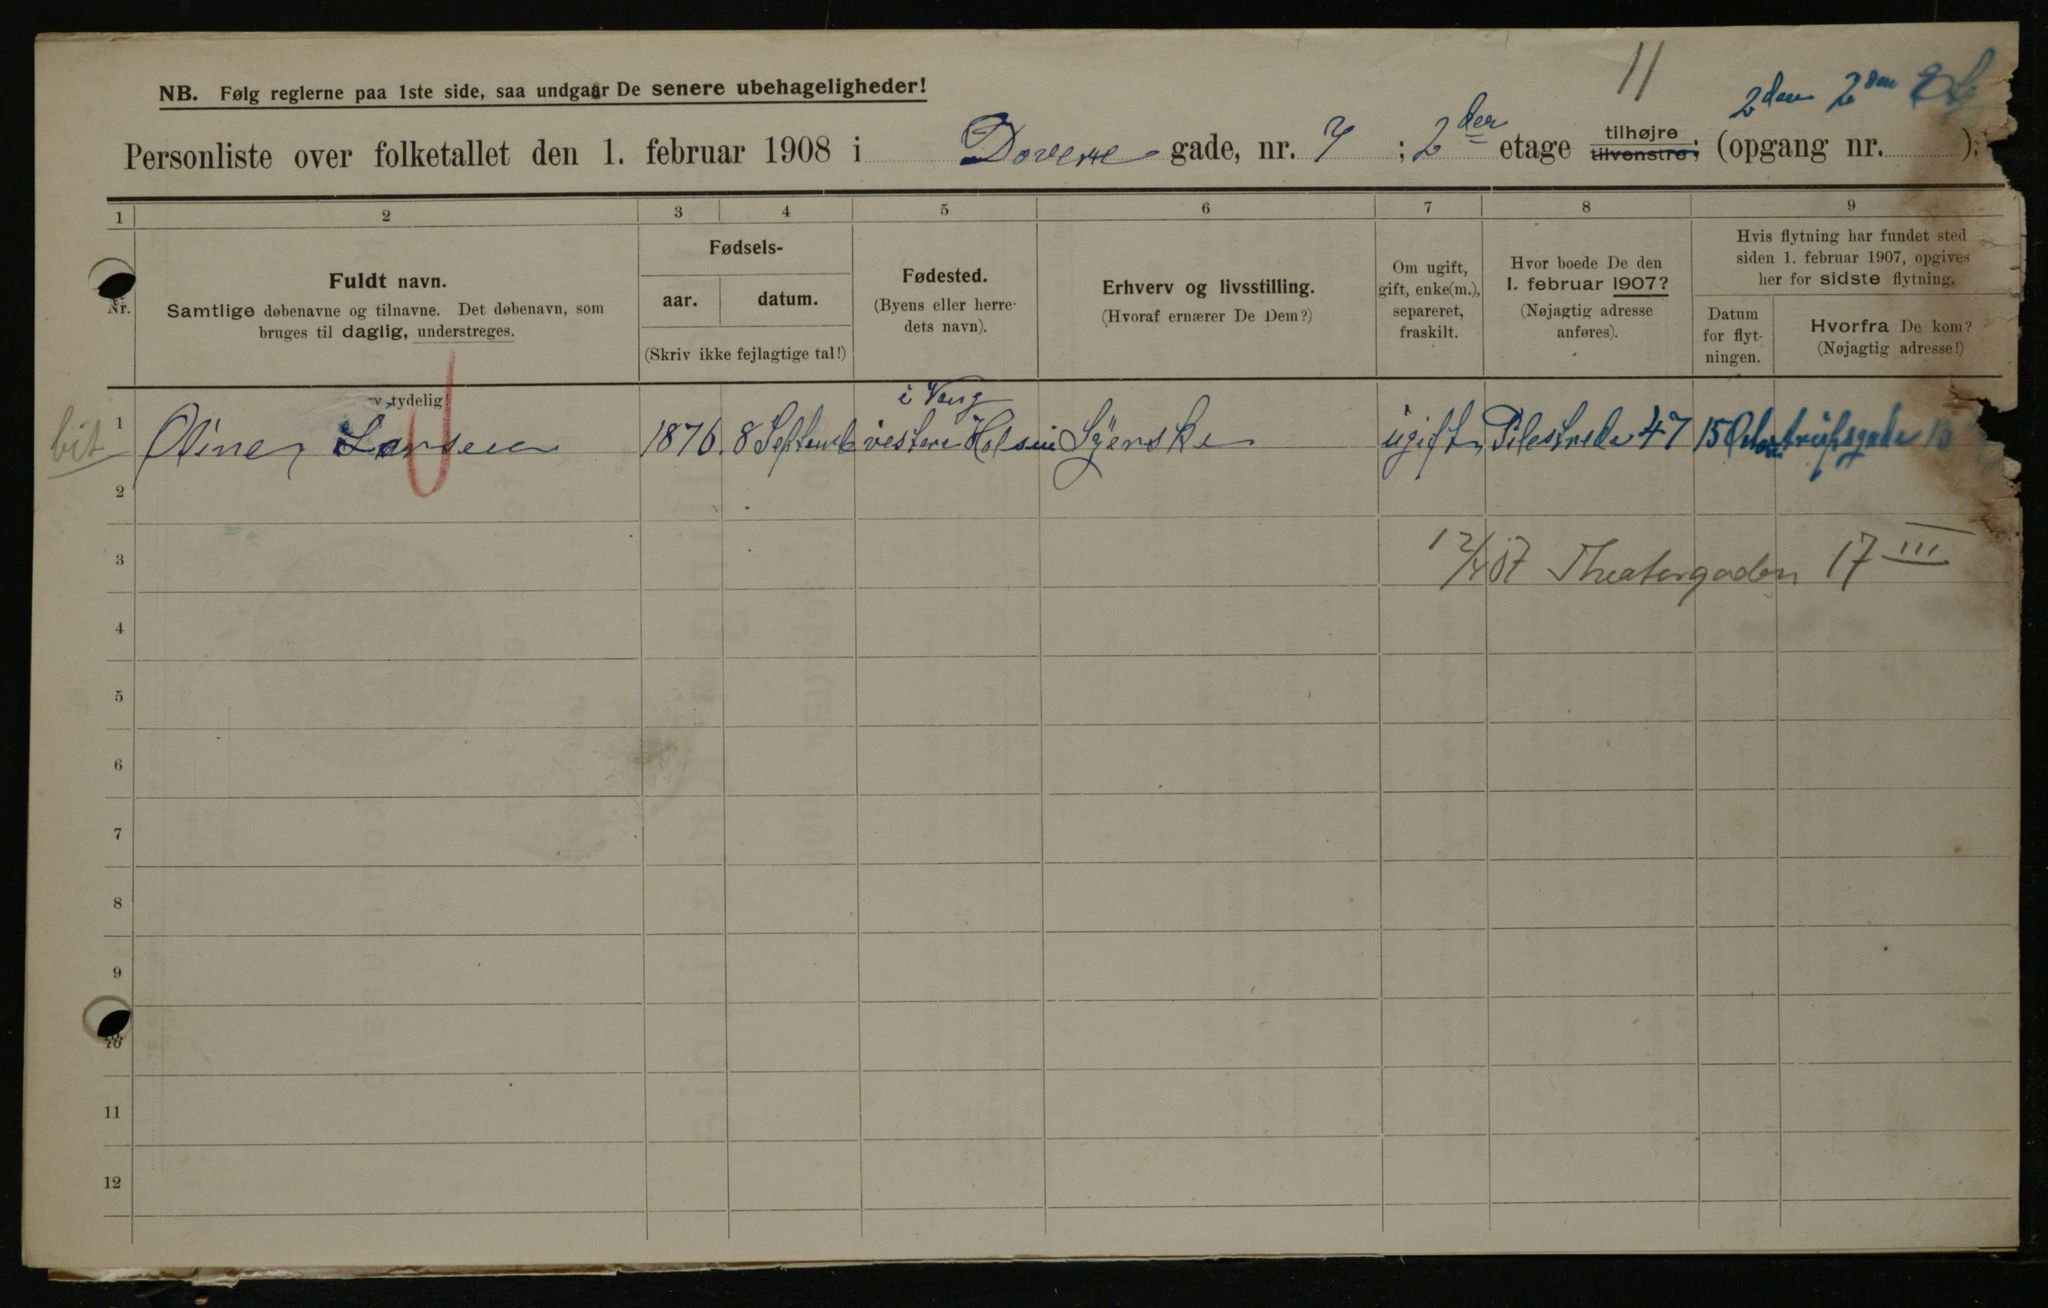 11
NB. Følg reglerne paa 1ste side, saa undgaar De senere ubehageligheder!
2den 2den
Personliste over folketallet den 1. februar 1908 i Dovere gade, nr. 7 ; 2der etage tilhøjre tilvenstre; (opgang nr. ).
1 2 3 4 5 6 7 8 9
Nr.
Fuldt navn.
Samtlige døbenavne og tilnavne. Det døbenavn, som
bruges til daglig, understreges.
Fødsels-
aar. datum.
(Skriv ikke fejlagtige tal!)
Fødested.
(Byens eller herre-
dets navn).
Erhverv og livsstilling.
(Hvoraf ernærer De Dem?)
Om ugift,
gift, enke(m.),
separeret,
fraskilt.
Hvor boede De den
1. februar 1907?
(Nøjagtig adresse
anføres).
Hvis flytning har fundet sted
siden 1. februar 1907, opgives
her for sidste flytning.
Datum
for flyt-
ningen.
Hvorfra De kom?
(Nøjagtig adresse!)
tydelig
i Vang
bit 1 Oline Larsen 1876 8 Septemb vestere Syerske ugift Pilestrede 47 15
2
3 12/4 07 Theatergaden 17 III
4
5
6
7
8
9
10
11
12